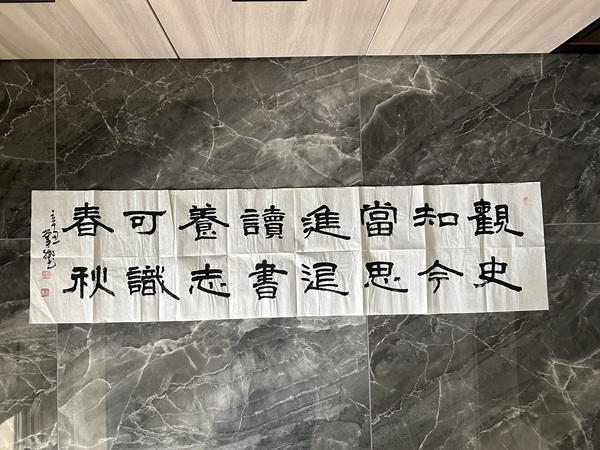 觀史
知今
當思
進退
讀書
養志
可識
春秋